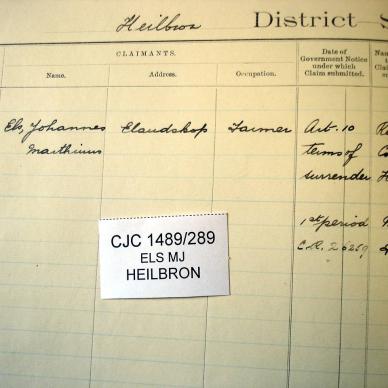 Heilbron District S
CLAIMANTS.
Name.
Address.
Occupation.
Date of
Government Notice
under which
Claim submitted.
Els, Johannes
Marthinus
Elandskop
Farmer
Art. 10
terms of
surrender
1st period
CJC 1489/289
ELS MJ
HEILBRON